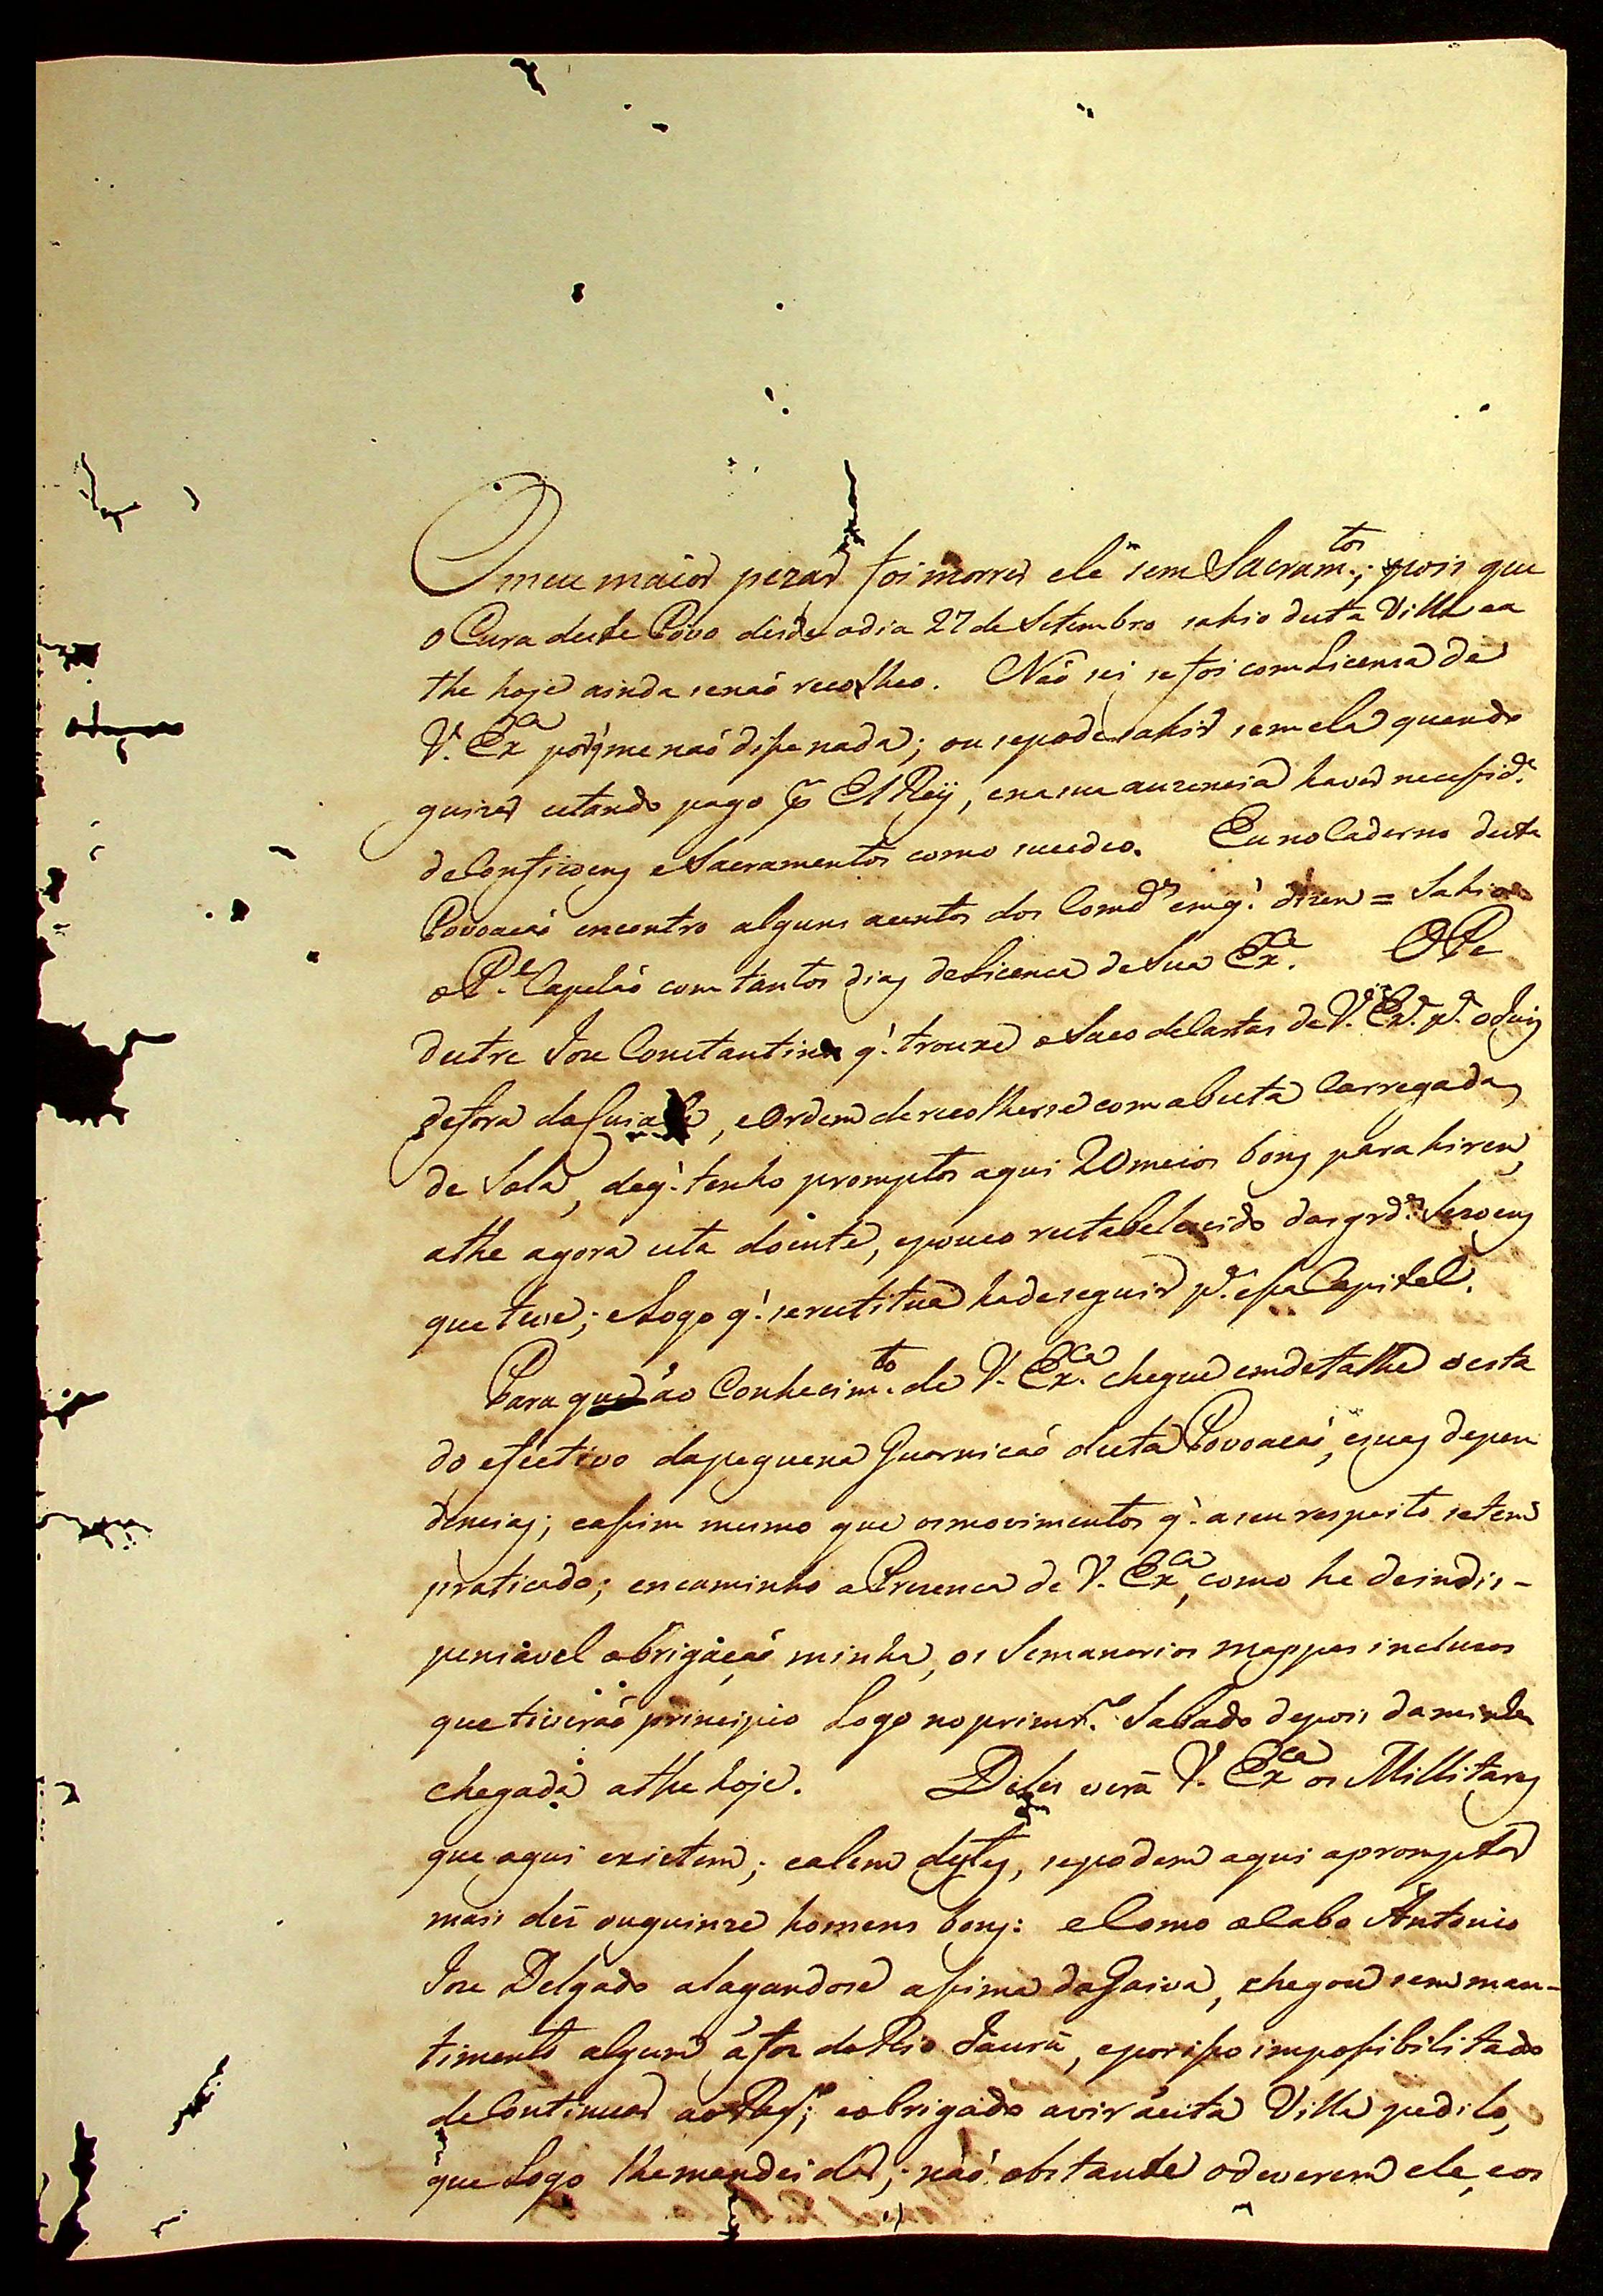 O meu maior pezar foi morrer ele sem Sacram.tos; pois que
o Cura deste Povo desde o dia 27 de Setembro sahio desta Villa e a
the hoje ainda se naõ recolheo. Naõ sei se foi com Licensa de
V. Ex.ca porq' me naõ disse nada; ou se pode sahir sem ela quando
quizer estando pago p.r El Rey, e na sua auzencia haver necessid.e
de Confisoens e Sacramentos como sucedeo. Eu no Caderno desta
Povoacaõ encontro alguns acentos dos Comd.es em q.' dizem = Sahio
o P.e Capelaõ com tantos dias de Licenca de Sua Ex.ca O Pe
destre Joze Constantino q.' trouxe o Saco de Cartas de V. Ex.ca p.a o Juis
de fora do Cuiabá, e Ordem de recolherse com a besta Carregada
de Sola, de q.' tenho promptos aqui 20 meios bons para hirem,
athe agora esta doente, e pouco restabelecido das grd.es Sezoens
que teve; e Logo q.' se restitua hade seguir p.a essa Capital.
Para que ao Conhecim.to de V. Ex.ca chegue em detalhe o esta
do efectivo da pequena Guarnicaõ desta Povoacaõ, e suas depen
dencias; e assim mesmo que os movimentos q.' a seu respeito se tem
praticado; encaminho a Presenca de V. Ex.ca, como he de indis-
pensavel obrigacaõ minha, os Semanarios mappas inclusos
que tiveraõ principio Logo no primr.o Sabado depois da minha
chegada athe hoje. Deles verá V. Ex.ca os Millitares
que aqui existem; e alem destes, se podem aqui apromptar
mais dés ou quinze homens bons: e Como o Cabo Antonio
Joze Delgado alagandose assima da Gaiva, chegou sem man-
timento algum á foz do Rio Jaurú, e por isso impossibilitado
de Continuar ao Pas.o; e obrigado a vir á esta Villa pedilo,
que Logo lhe mandei dar; naõ obstante o deverem ele, e os